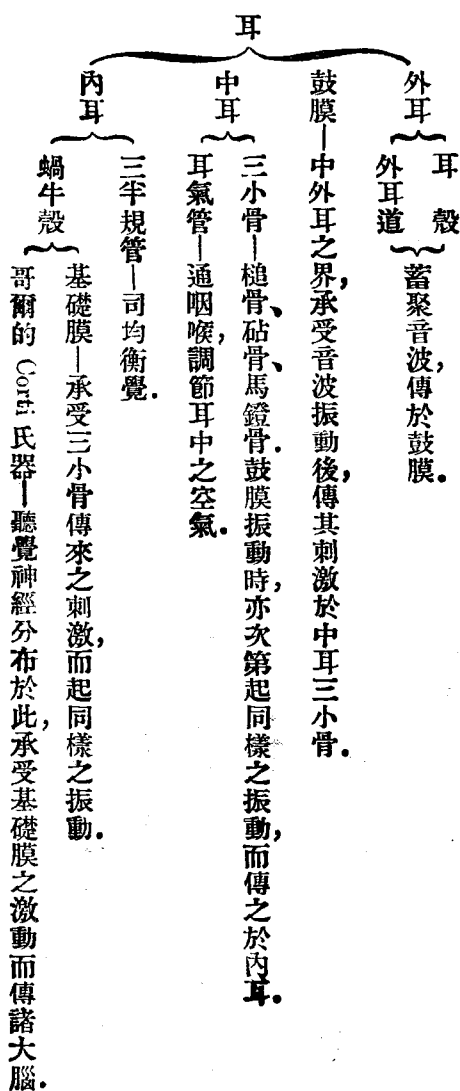 耳
外耳
耳殼
外耳道
蓄聚音波,傳於鼓膜.
鼓膜—中外耳之界,承受音波振動後,傳其刺激於中耳三小骨.
中耳
三小骨—槌骨、砧骨、馬鐙骨.鼓膜振動時,亦次第起同樣之振動,而傳之於內耳.
耳氣管—通咽喉,調節耳中之空氣.
內耳
三半規管—司均衡覺.
蝸牛殼
基礎膜—承受三小骨傳來之刺激,而起同樣之振動.
哥爾的 Corti 氏器—聽覺神經分布於此,承受基礎膜之激動而傳諸大腦.